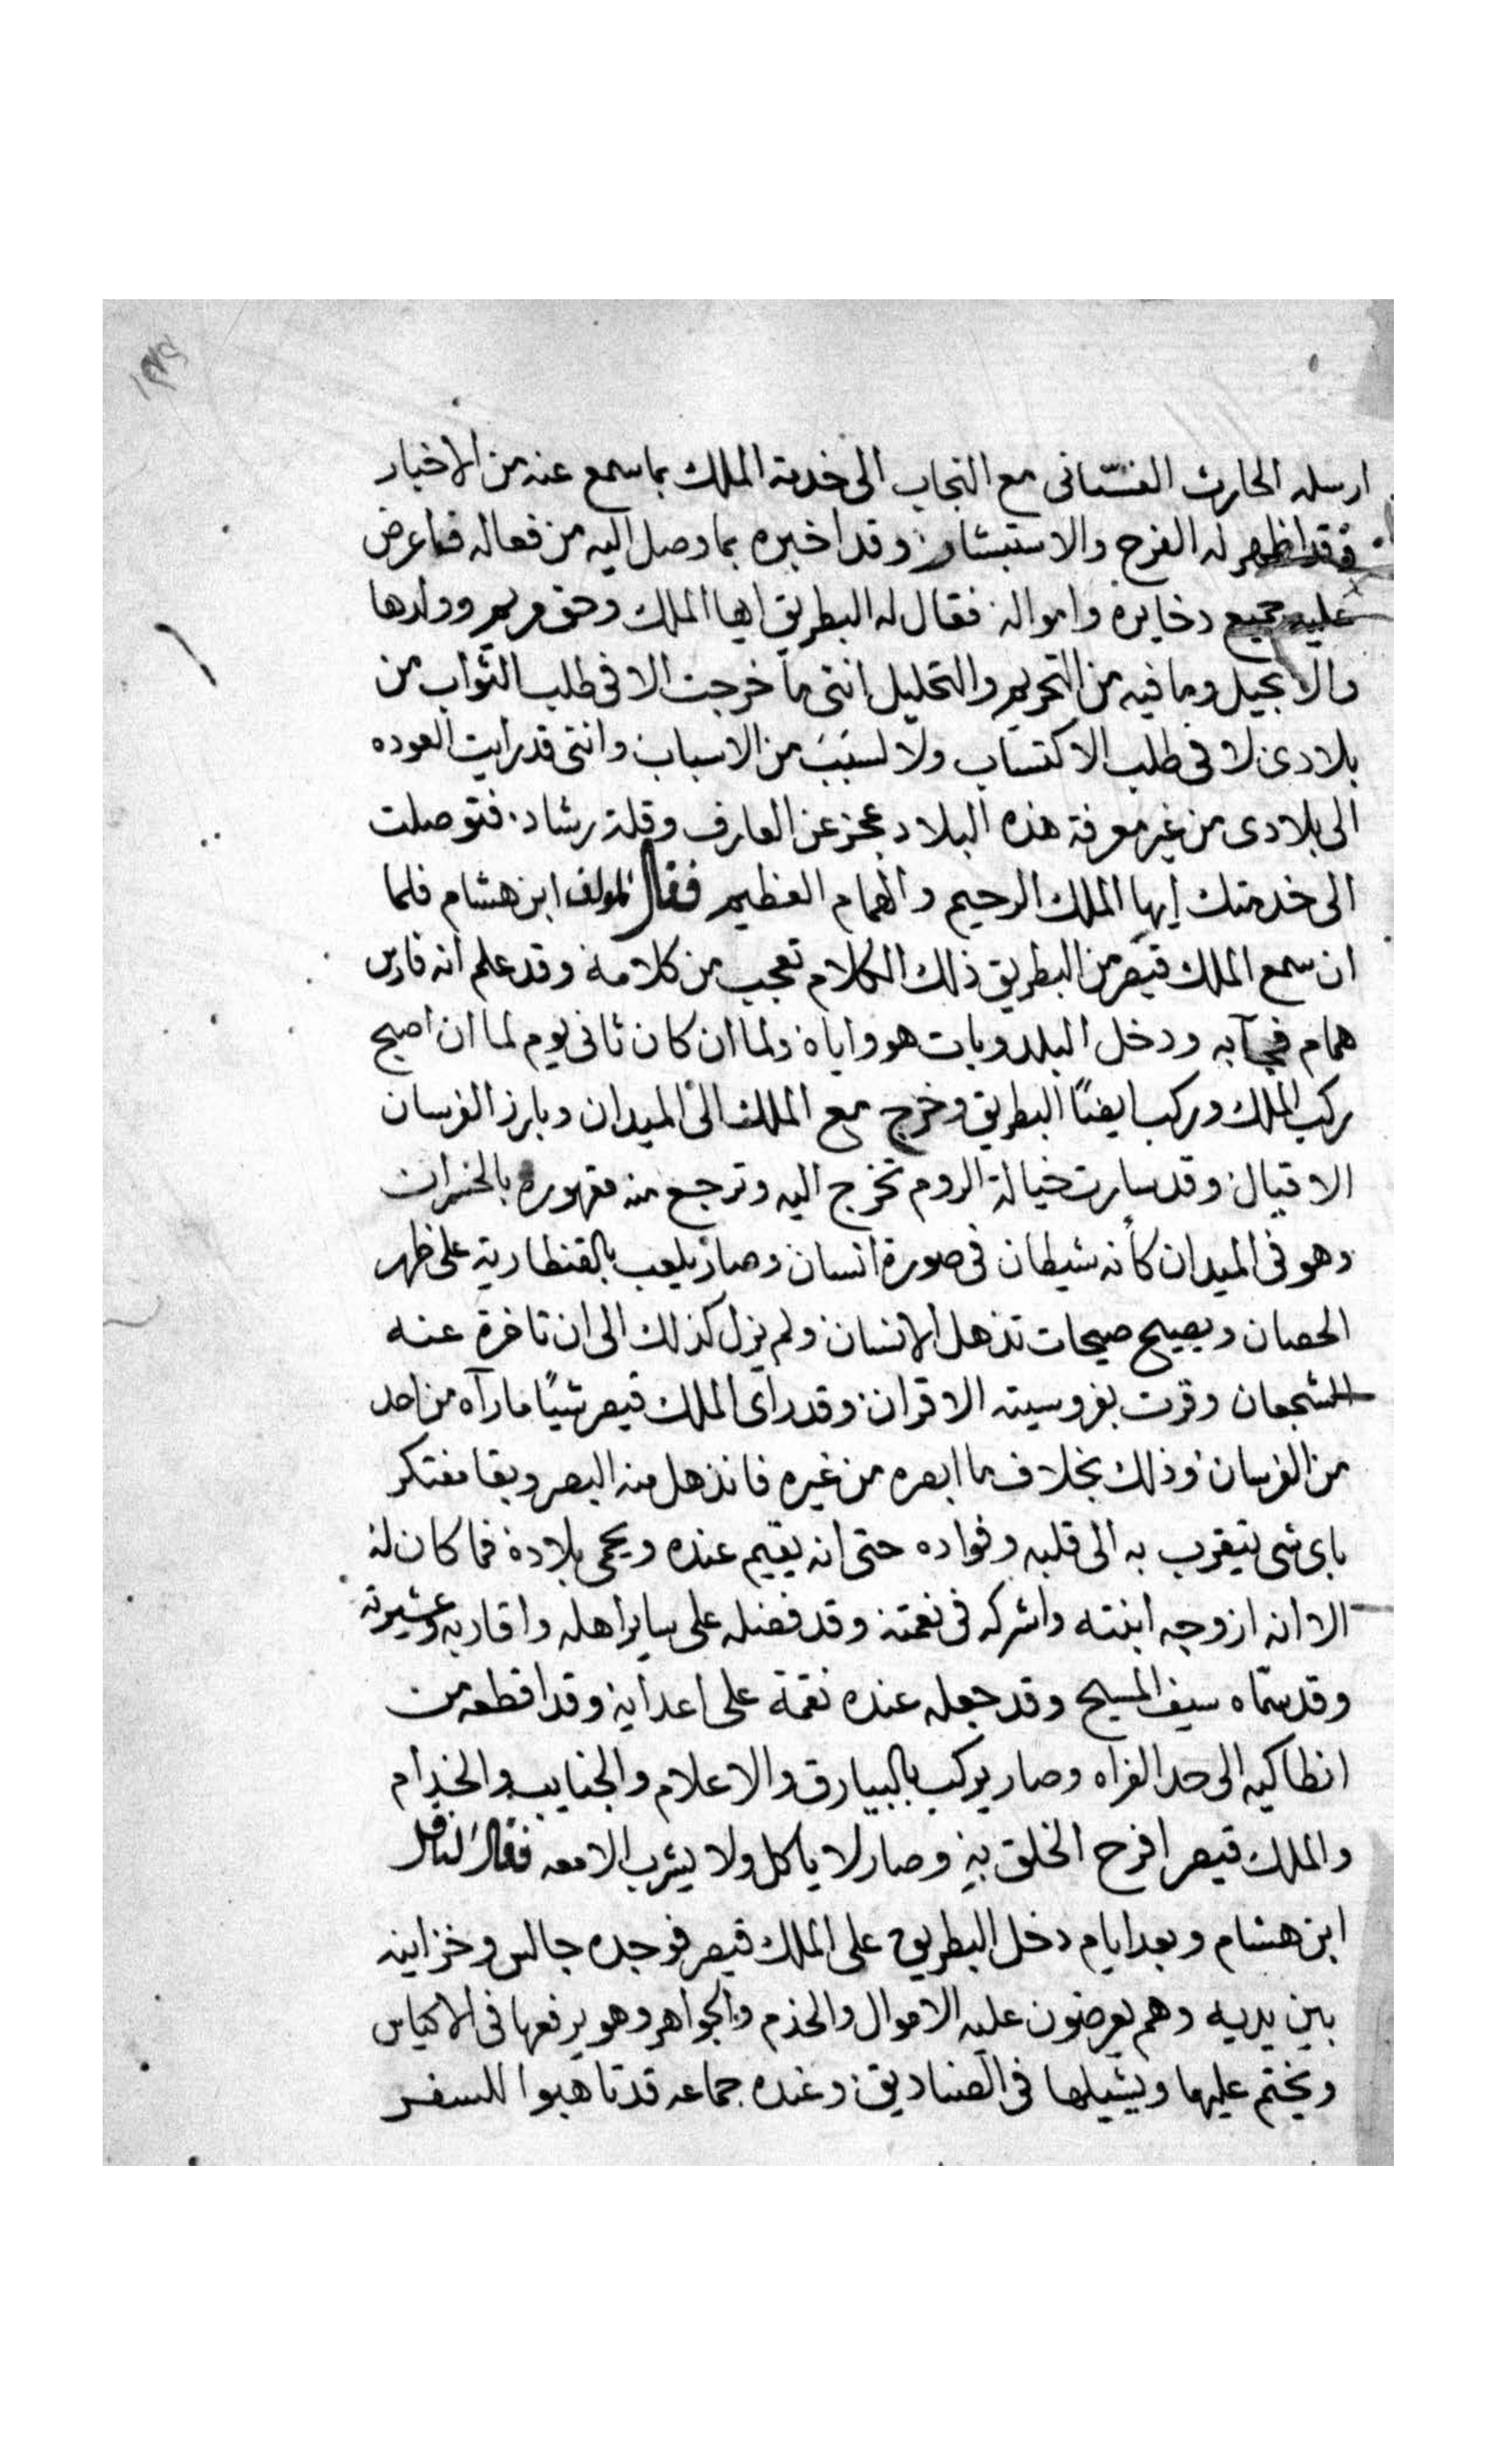 ارسله الحارث الغسّانى مع النجاب الى خدمة الملك بما سمع عنه من الاخبار
فقد اظهر له الفرح والاستبشار وقد اخبره بما وصل اليه من فعاله فما عرض
عليه جميع دخايره وامواله فقال له البطريق ايها الملك وحق مريم وولدها
والانجيل وما فيه من التحريم والتحليل اننى ما خرجت الا فى طلب الثواب من
بلادى لا فى طلب الاكتساب ولا لسبب من الاسباب واننى قد رايت العوده
الى بلادى من غير معرفة هذه البلاد عجز عن العارف وقلة رشاد فتوصلت
الى خدمتك ايها الملك الرحيم والهمام العظيم فقال المولف ابن هشام فلما
ان سمع الملك قيصر من البطريق ذلك الكلام تعجب من كلامه وقد علم انه فارس
همام به ودخل البلد وبات هو واياه ولما ان كان ثانى يوم لما ان اصبح
ركب الملك وركب ايضًا البطريق وخرج مع الملك الى الميدان وبارز الفرسان
الاقيال وقد سارت خيالة الروم تخرج اليه وترجع منه مقهوره بالخسران
وهو فى الميدان كأنه شيطان فى صورة انسان وصار يلعب بالقنطارية على ظهر
الحصان ويصيح صيحات تذهل الانسان ولم يزل كذلك الى ان تاخرة عنه
الشجعان وقرت بفروسيته الاقران وقد راى الملك قيصر شيًا ما رآه من احد
من الفرسان وذلك بخلاف ما ابصره من غيره فانذهل منه البصر وبقا مفتكر
باى شى يتقرب به الى قلبه وفواده حتى انه يقيم عنده ويحمى بلاده فما كان له
الا انه ازوجه ابنته واشركه فى نعمته وقد فضله على ساير اهله واقاربه وعشيرته
وقد سمّاه سيف المسيح وقد جعله عنده نقمة على اعدايه وقد اقطعه من
انطاكيه الى حد الفراه وصار يركب بالبيارق والاعلام والجنايب والخدام
والملك قيصر افرح الخلق به وصار لا ياكل ولا يشرب الا معه فقال الناقل
ابن هشام وبعد ايام دخل البطريق على الملك قيصر فوجده جالس وخزاينه
بين يديه وهم يعرضون عليه الاموال والخدم والجواهر وهو يرفعها فى الاكياس
ويختم عليها ويشيلها فى الصناديق وعنده جماعه قد تاهبوا للسفر